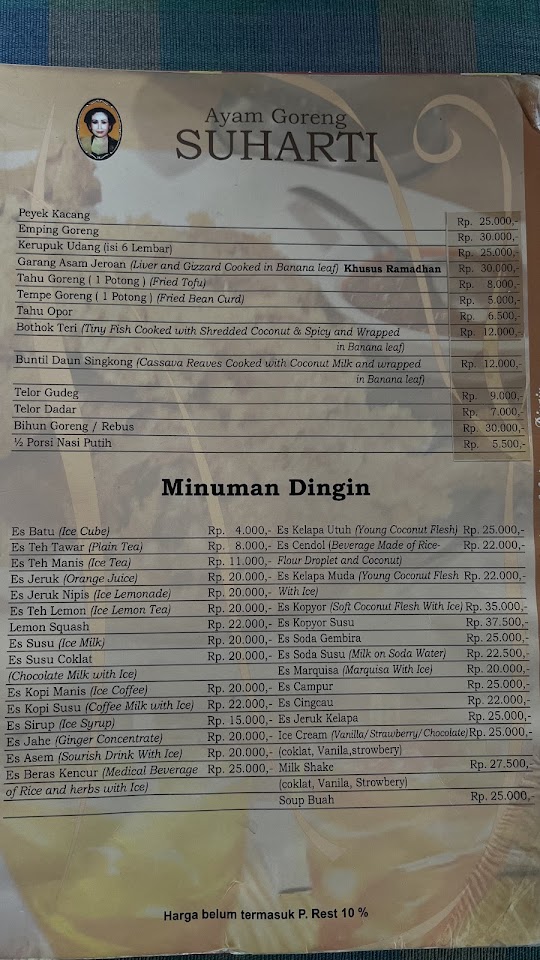 Ayam Goreng
SUHARTI
Peyek Kacang Rp. 25.000,-
Emping Goreng Rp. 30.000,-
Kerupuk Udang (isi 6 Lembar) Rp. 25.000,-
Garang Asam Jeroan (Liver and Gizzard Cooked in Banana leaf) Khusus Ramadhan Rp. 30.000,-
Tahu Goreng ( 1 Potong ) (Fried Tofu) Rp. 8.000,-
Tempe Goreng ( 1 Potong ) (Fried Bean Curd) Rp. 5.000,-
Tahu Opor Rp. 6.500,-
Bothok Teri (Tiny Fish Cooked with Shredded Coconut & Spicy and Wrapped Rp. 12.000,-
in Banana leaf)
Buntil Daun Singkong (Cassava Reaves Cooked with Coconut Milk and wrapped Rp. 12.000,-
in Banana leaf)
Telor Gudeg Rp. 9.000,-
Telor Dadar Rp. 7.000,-
Bihun Goreng / Rebus Rp. 30.000,-
½ Porsi Nasi Putih Rp. 5.500,-
Minuman Dingin
Es Batu (Ice Cube) Rp. 4.000,-
Es Teh Tawar (Plain Tea) Rp. 8.000,-
Es Teh Manis (Ice Tea) Rp. 11.000,-
Es Jeruk (Orange Juice) Rp. 20.000,-
Es Jeruk Nipis (Ice Lemonade) Rp. 20.000,-
Es Teh Lemon (Ice Lemon Tea) Rp. 20.000,-
Lemon Squash Rp. 22.000,-
Es Susu (Ice Milk) Rp. 20.000,-
Es Susu Coklat Rp. 20.000,-
(Chocolate Milk with Ice)
Es Kopi Manis (Ice Coffee) Rp. 20.000,-
Es Kopi Susu (Coffee Milk with Ice) Rp. 22.000,-
Es Sirup (Ice Syrup) Rp. 15.000,-
Es Jahe (Ginger Concentrate) Rp. 20.000,-
Es Asem (Sourish Drink With Ice) Rp. 20.000,-
Es Beras Kencur (Medical Beverage Rp. 25.000,-
of Rice and herbs with Ice)
Es Kelapa Utuh (Young Coconut Flesh) Rp. 25.000,-
Es Cendol (Beverage Made of Rice- Rp. 22.000,-
Flour Droplet and Coconut)
Es Kelapa Muda (Young Coconut Flesh Rp. 22.000,-
With Ice)
Es Kopyor (Soft Coconut Flesh With Ice) Rp. 35.000,-
Es Kopyor Susu Rp. 37.500,-
Es Soda Gembira Rp. 25.000,-
Es Soda Susu (Milk on Soda Water) Rp. 22.500,-
Es Marquisa (Marquisa With Ice) Rp. 20.000,-
Es Campur Rp. 25.000,-
Es Cingcau Rp. 22.000,-
Es Jeruk Kelapa Rp. 25.000,-
Ice Cream (Vanilla/Strawberry/Chocolate) Rp. 25.000,-
(coklat, Vanila,strowbery)
Milk Shake Rp. 27.500,-
(coklat, Vanila, Strowbery)
Soup Buah Rp. 25.000,-
Harga belum termasuk P. Rest 10 %